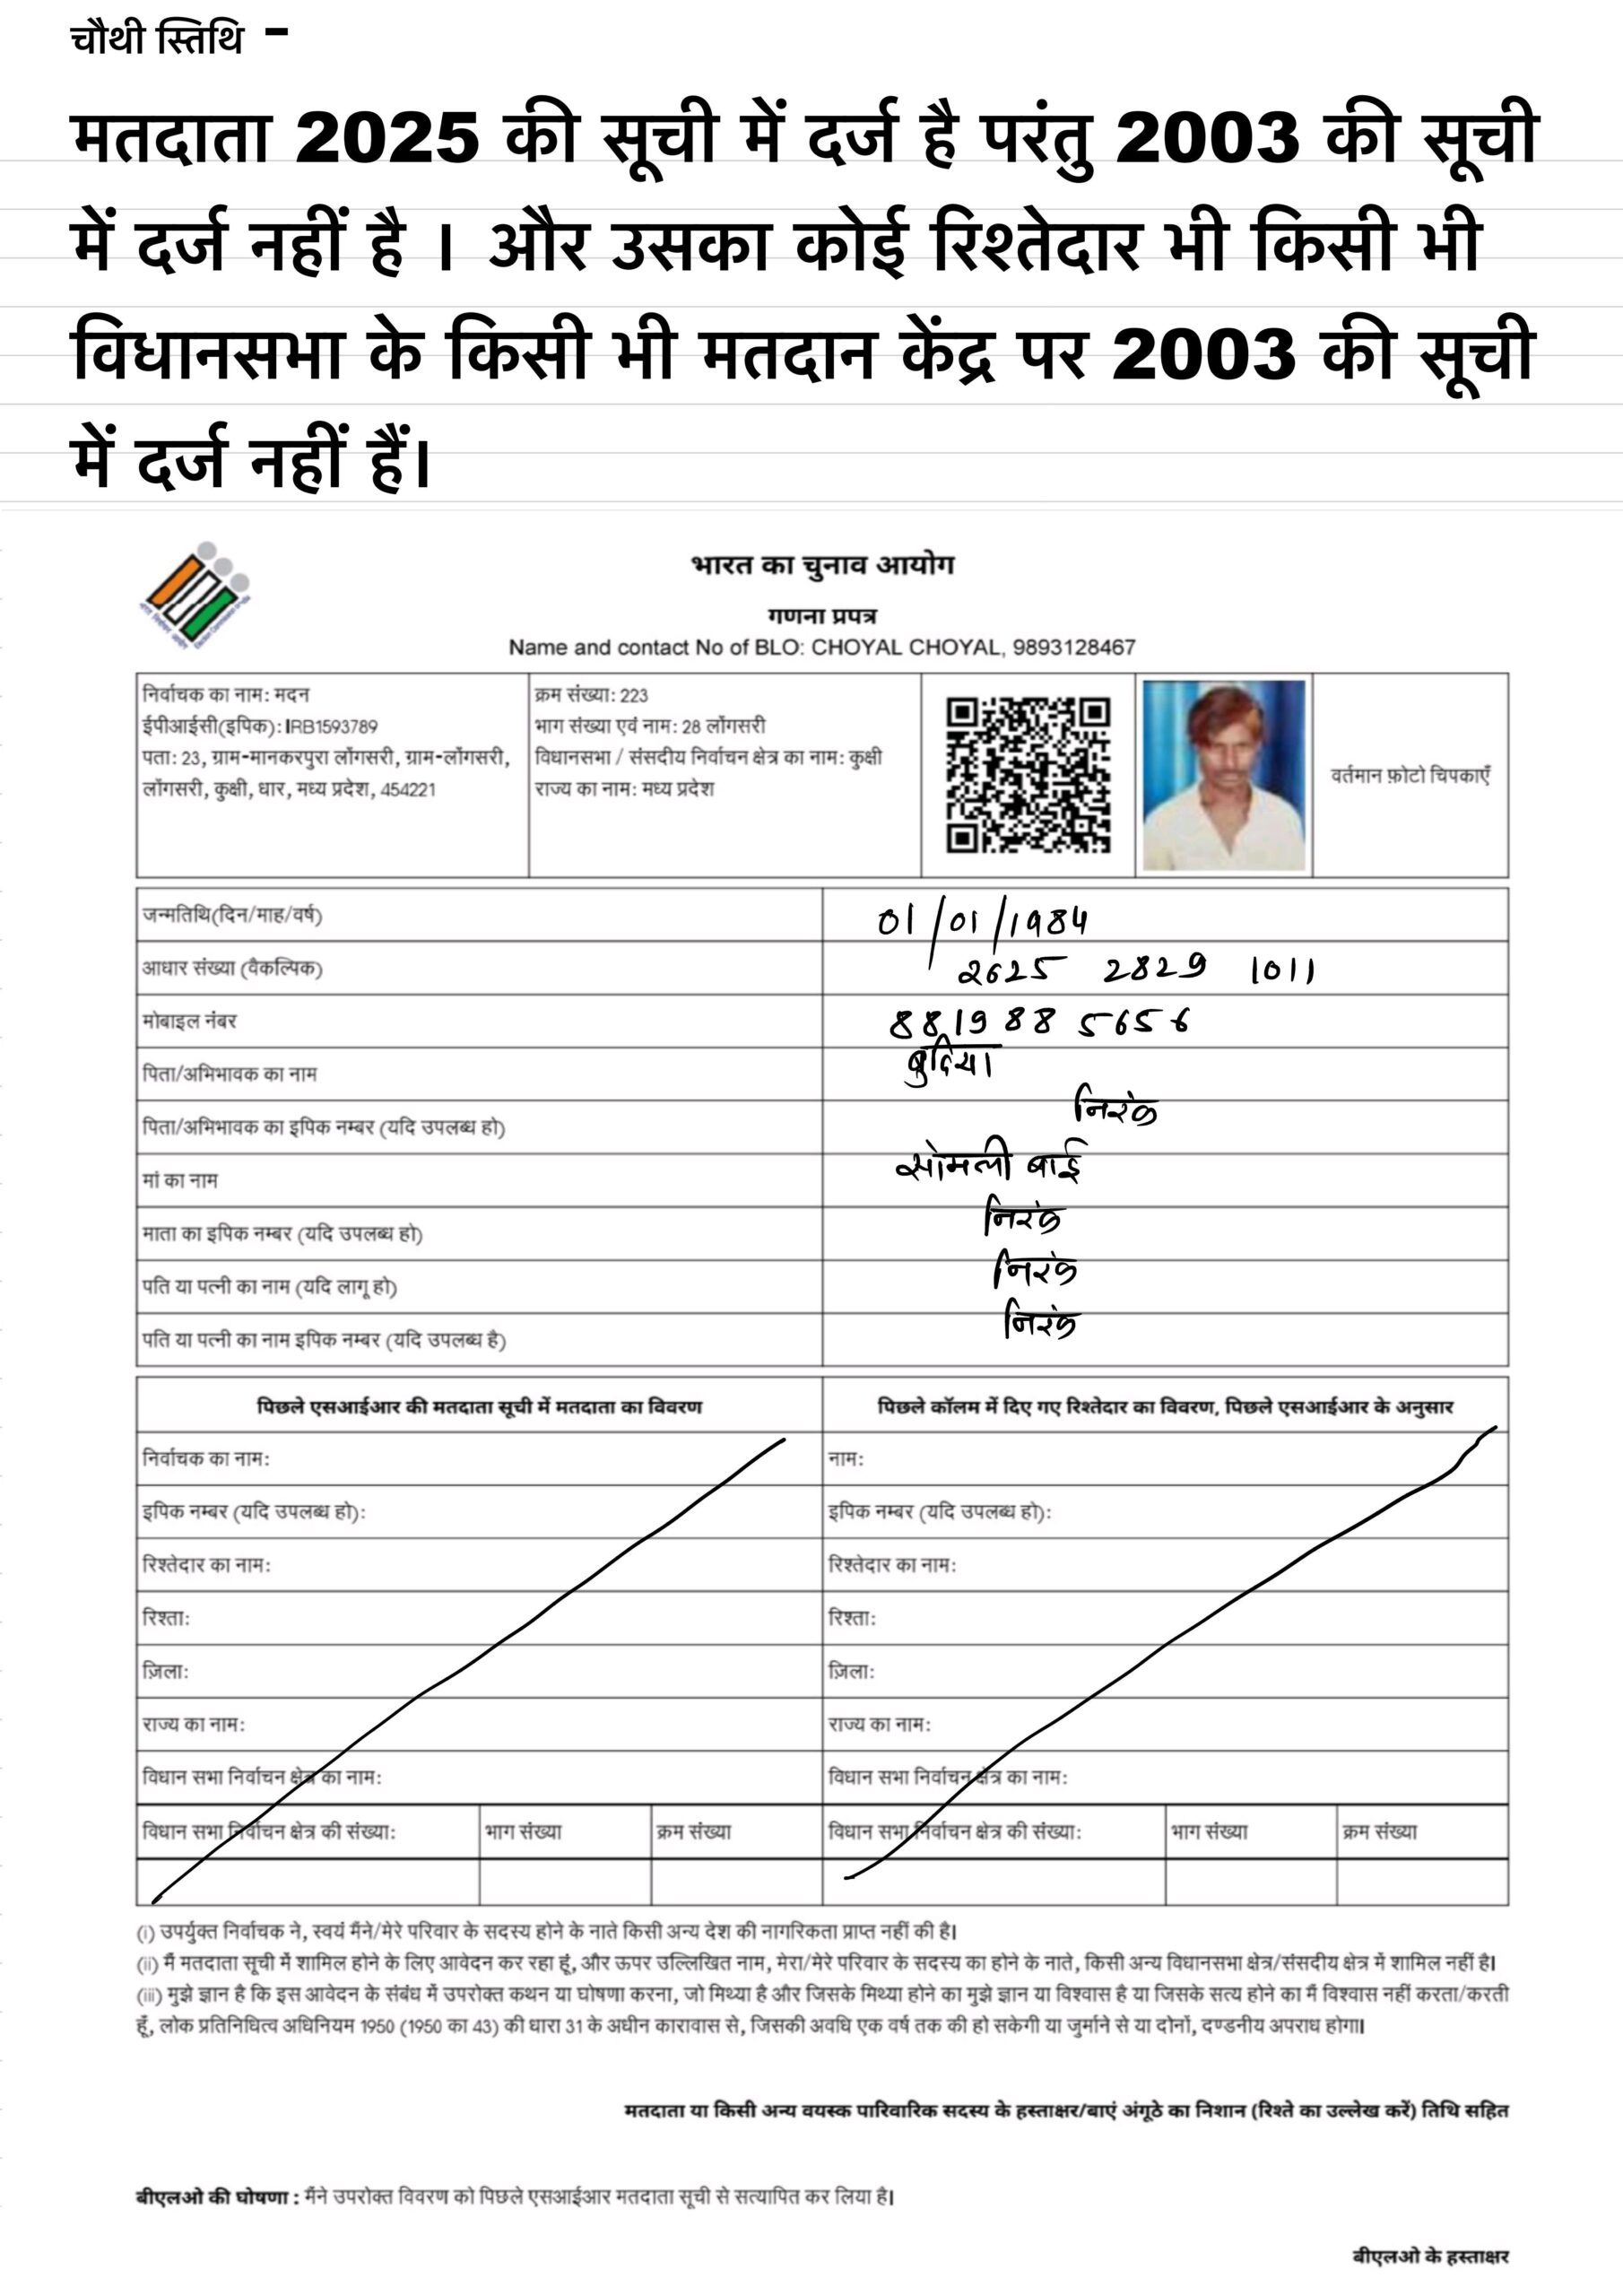 चौथी स्तिथि -
मतदाता 2025 की सूची में दर्ज है परंतु 2003 की सूची
में दर्ज नहीं है । और उसका कोई रिश्तेदार भी किसी भी
विधानसभा के किसी भी मतदान केंद्र पर 2003 की सूची
में दर्ज नहीं हैं।
भारत का चुनाव आयोग
गणना प्रपत्र
Name and contact No of BLO: CHOYAL CHOYAL, 9893128467
निर्वाचक का नाम: मदन
ईपीआईसी(इपिक): IRB1593789
पता: 23, ग्राम-मानकरपुरा लोंगसरी, ग्राम-लोंगसरी,
लोंगसरी, कुक्षी, धार, मध्य प्रदेश, 454221
क्रम संख्या: 223
भाग संख्या एवं नाम: 28 लोंगसरी
विधानसभा / संसदीय निर्वाचन क्षेत्र का नाम: कुक्षी
राज्य का नाम: मध्य प्रदेश
वर्तमान फ़ोटो चिपकाएँ
जन्मतिथि(दिन/माह/वर्ष) 01/01/1984
आधार संख्या (वैकल्पिक) 2625 2829 1011
मोबाइल नंबर 8819 88 5656
पिता/अभिभावक का नाम बुदिया
पिता/अभिभावक का इपिक नम्बर (यदि उपलब्ध हो) निरंक
मां का नाम सोमली बाई
माता का इपिक नम्बर (यदि उपलब्ध हो) निरंक
पति या पत्नी का नाम (यदि लागू हो) निरंक
पति या पत्नी का नाम इपिक नम्बर (यदि उपलब्ध है) निरंक
पिछले एसआईआर की मतदाता सूची में मतदाता का विवरण
पिछले कॉलम में दिए गए रिश्तेदार का विवरण, पिछले एसआईआर के अनुसार
निर्वाचक का नाम: नाम:
इपिक नम्बर (यदि उपलब्ध हो): इपिक नम्बर (यदि उपलब्ध हो):
रिश्तेदार का नाम: रिश्तेदार का नाम:
रिश्ता: रिश्ता:
ज़िला: ज़िला:
राज्य का नाम: राज्य का नाम:
विधान सभा निर्वाचन क्षेत्र का नाम: विधान सभा निर्वाचन क्षेत्र का नाम:
विधान सभा निर्वाचन क्षेत्र की संख्या: भाग संख्या क्रम संख्या विधान सभा निर्वाचन क्षेत्र की संख्या: भाग संख्या क्रम संख्या
(i) उपर्युक्त निर्वाचक ने, स्वयं मैंने/मेरे परिवार के सदस्य होने के नाते किसी अन्य देश की नागरिकता प्राप्त नहीं की है।
(ii) मैं मतदाता सूची में शामिल होने के लिए आवेदन कर रहा हूं, और ऊपर उल्लिखित नाम, मेरा/मेरे परिवार के सदस्य का होने के नाते, किसी अन्य विधानसभा क्षेत्र/संसदीय क्षेत्र में शामिल नहीं है।
(iii) मुझे ज्ञान है कि इस आवेदन के संबंध में उपरोक्त कथन या घोषणा करना, जो मिथ्या है और जिसके मिथ्या होने का मुझे ज्ञान या विश्वास है या जिसके सत्य होने का मैं विश्वास नहीं करता/करती
हूँ, लोक प्रतिनिधित्व अधिनियम 1950 (1950 का 43) की धारा 31 के अधीन कारावास से, जिसकी अवधि एक वर्ष तक की हो सकेगी या जुर्माने से या दोनों, दण्डनीय अपराध होगा।
मतदाता या किसी अन्य वयस्क पारिवारिक सदस्य के हस्ताक्षर/बाएं अंगूठे का निशान (रिश्ते का उल्लेख करें) तिथि सहित
बीएलओ की घोषणा : मैंने उपरोक्त विवरण को पिछले एसआईआर मतदाता सूची से सत्यापित कर लिया है।
बीएलओ के हस्ताक्षर